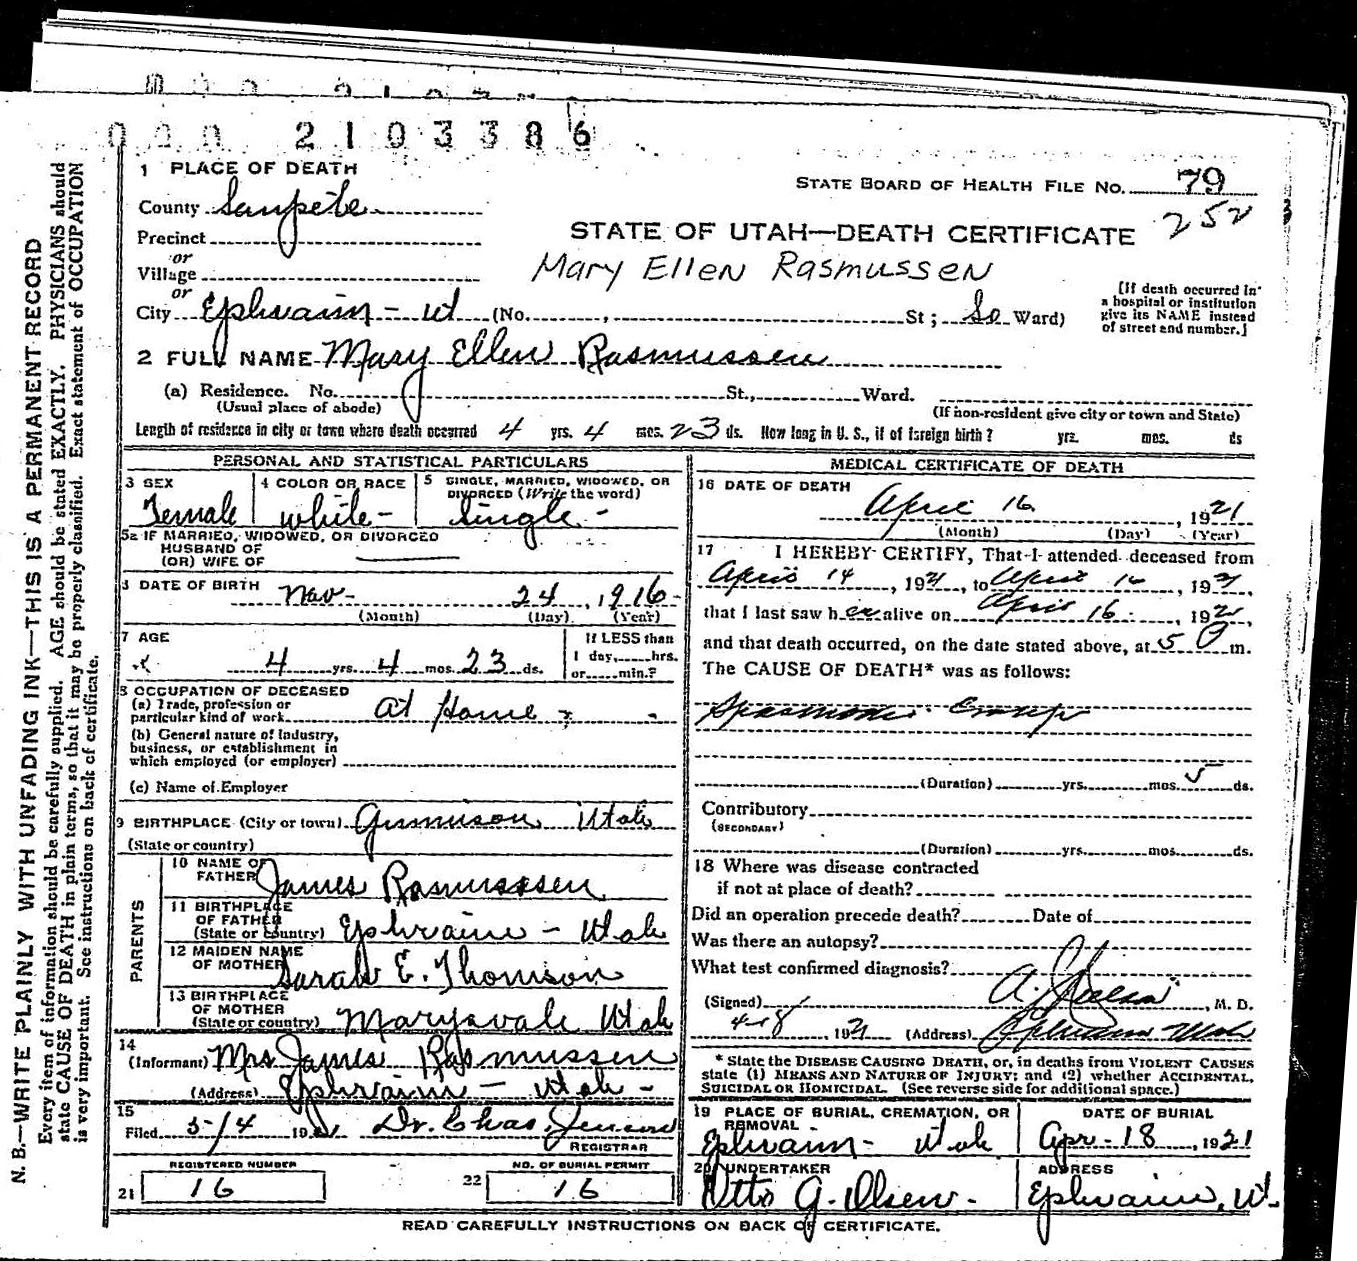 0002103386
1 PLACE OF DEATH
STATE BOARD OF HEALTH FILE NO. 79
County Sanpete
252
Precinct
STATE OF UTAH—DEATH CERTIFICATE
or
Village
Mary Ellen Rasmussen
[If death occurred in a hospital or institution give its NAME instead of street and number.]
or
City Ephraim - Ut (No. , St; So Ward)
2 FULL NAME Mary Ellen Rasmussen
(a) Residence. No. St., Ward.
(Usual place of abode)
(If non-resident give city or town and State)
Length of residence in city or town where death occurred 4 yrs. 4 mos. 23 ds. How long in U. S., if of foreign birth? yrs. mos. ds
PERSONAL AND STATISTICAL PARTICULARS
3 SEX
Female
4 COLOR OR RACE
white -
5 SINGLE, MARRIED, WIDOWED, OR DIVORCED (Write the word)
Single -
5a IF MARRIED, WIDOWED, OR DIVORCED
HUSBAND OF
(OR) WIFE OF
DATE OF BIRTH Nov - 24, 1916 -
(Month) (Day) (Year)
7 AGE
4 yrs. 4 mos. 23 ds.
If LESS than
1 day, hrs.
or min.?
8 OCCUPATION OF DECEASED
(a) Trade, profession or
particular kind of work At Home -
(b) General nature of Industry,
business, or establishment in
which employed (or employer)
(c) Name of Employer
9 BIRTHPLACE (City or town) Gunnison Utah
(State or country)
PARENTS
10 NAME OF
FATHER James Rasmussen
11 BIRTHPLACE
OF FATHER
(State or Country) Ephraim - Utah
12 MAIDEN NAME
OF MOTHER Sarah E. Thomson
13 BIRTHPLACE
OF MOTHER
(State or country) Marysvale Utah
14
(Informant) Mrs James Rasmussen
(Address) Ephraim - Utah -
15
Filed 5-14 19 Dr. Chas. Jensen
REGISTRAR
REGISTERED NUMBER
21 16
NO. OF BURIAL PERMIT
22 16
MEDICAL CERTIFICATE OF DEATH
16 DATE OF DEATH
April 16, 1921
(Month) (Day) (Year)
17 I HEREBY CERTIFY, That I attended deceased from
April 14, 1921, to April 16, 1921,
that I last saw her alive on April 16, 1921,
and that death occurred, on the date stated above, at 5 P m.
The CAUSE OF DEATH* was as follows:
Spasmodic Croup
(Duration) yrs. mos. 5 ds.
Contributory
(SECONDARY)
(Duration) yrs. mos. ds.
18 Where was disease contracted
if not at place of death?
Did an operation precede death? Date of
Was there an autopsy?
What test confirmed diagnosis?
(Signed) A. , M. D.
4-18, 1921 (Address) Ephraim Utah
* State the DISEASE CAUSING DEATH, or, in deaths from VIOLENT CAUSES
state (1) MEANS AND NATURE OF INJURY; and (2) whether ACCIDENTAL,
SUICIDAL OR HOMICIDAL. (See reverse side for additional space.)
19 PLACE OF BURIAL, CREMATION, OR REMOVAL
Ephraim - Utah
DATE OF BURIAL
Apr - 18, 1921
20 UNDERTAKER
Otto G. Olsen -
ADDRESS
Ephraim, Ut.
READ CAREFULLY INSTRUCTIONS ON BACK OF CERTIFICATE.
N. B.—WRITE PLAINLY WITH UNFADING INK—THIS IS A PERMANENT RECORD
Every item of information should be carefully supplied. AGE should be stated EXACTLY. PHYSICIANS should
state CAUSE OF DEATH in plain terms, so that it may be properly classified. Exact statement of OCCUPATION
is very important. See instructions on back of certificate.